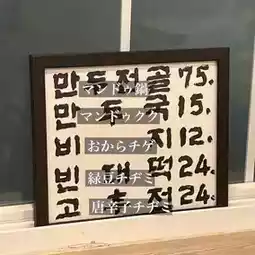 만두전골 75.
マンドゥ鍋
만두국 15.
マンドゥクク
비지 12.
おからチゲ
빈대떡 24.
緑豆チヂミ
고추전 24.
唐辛子チヂミ